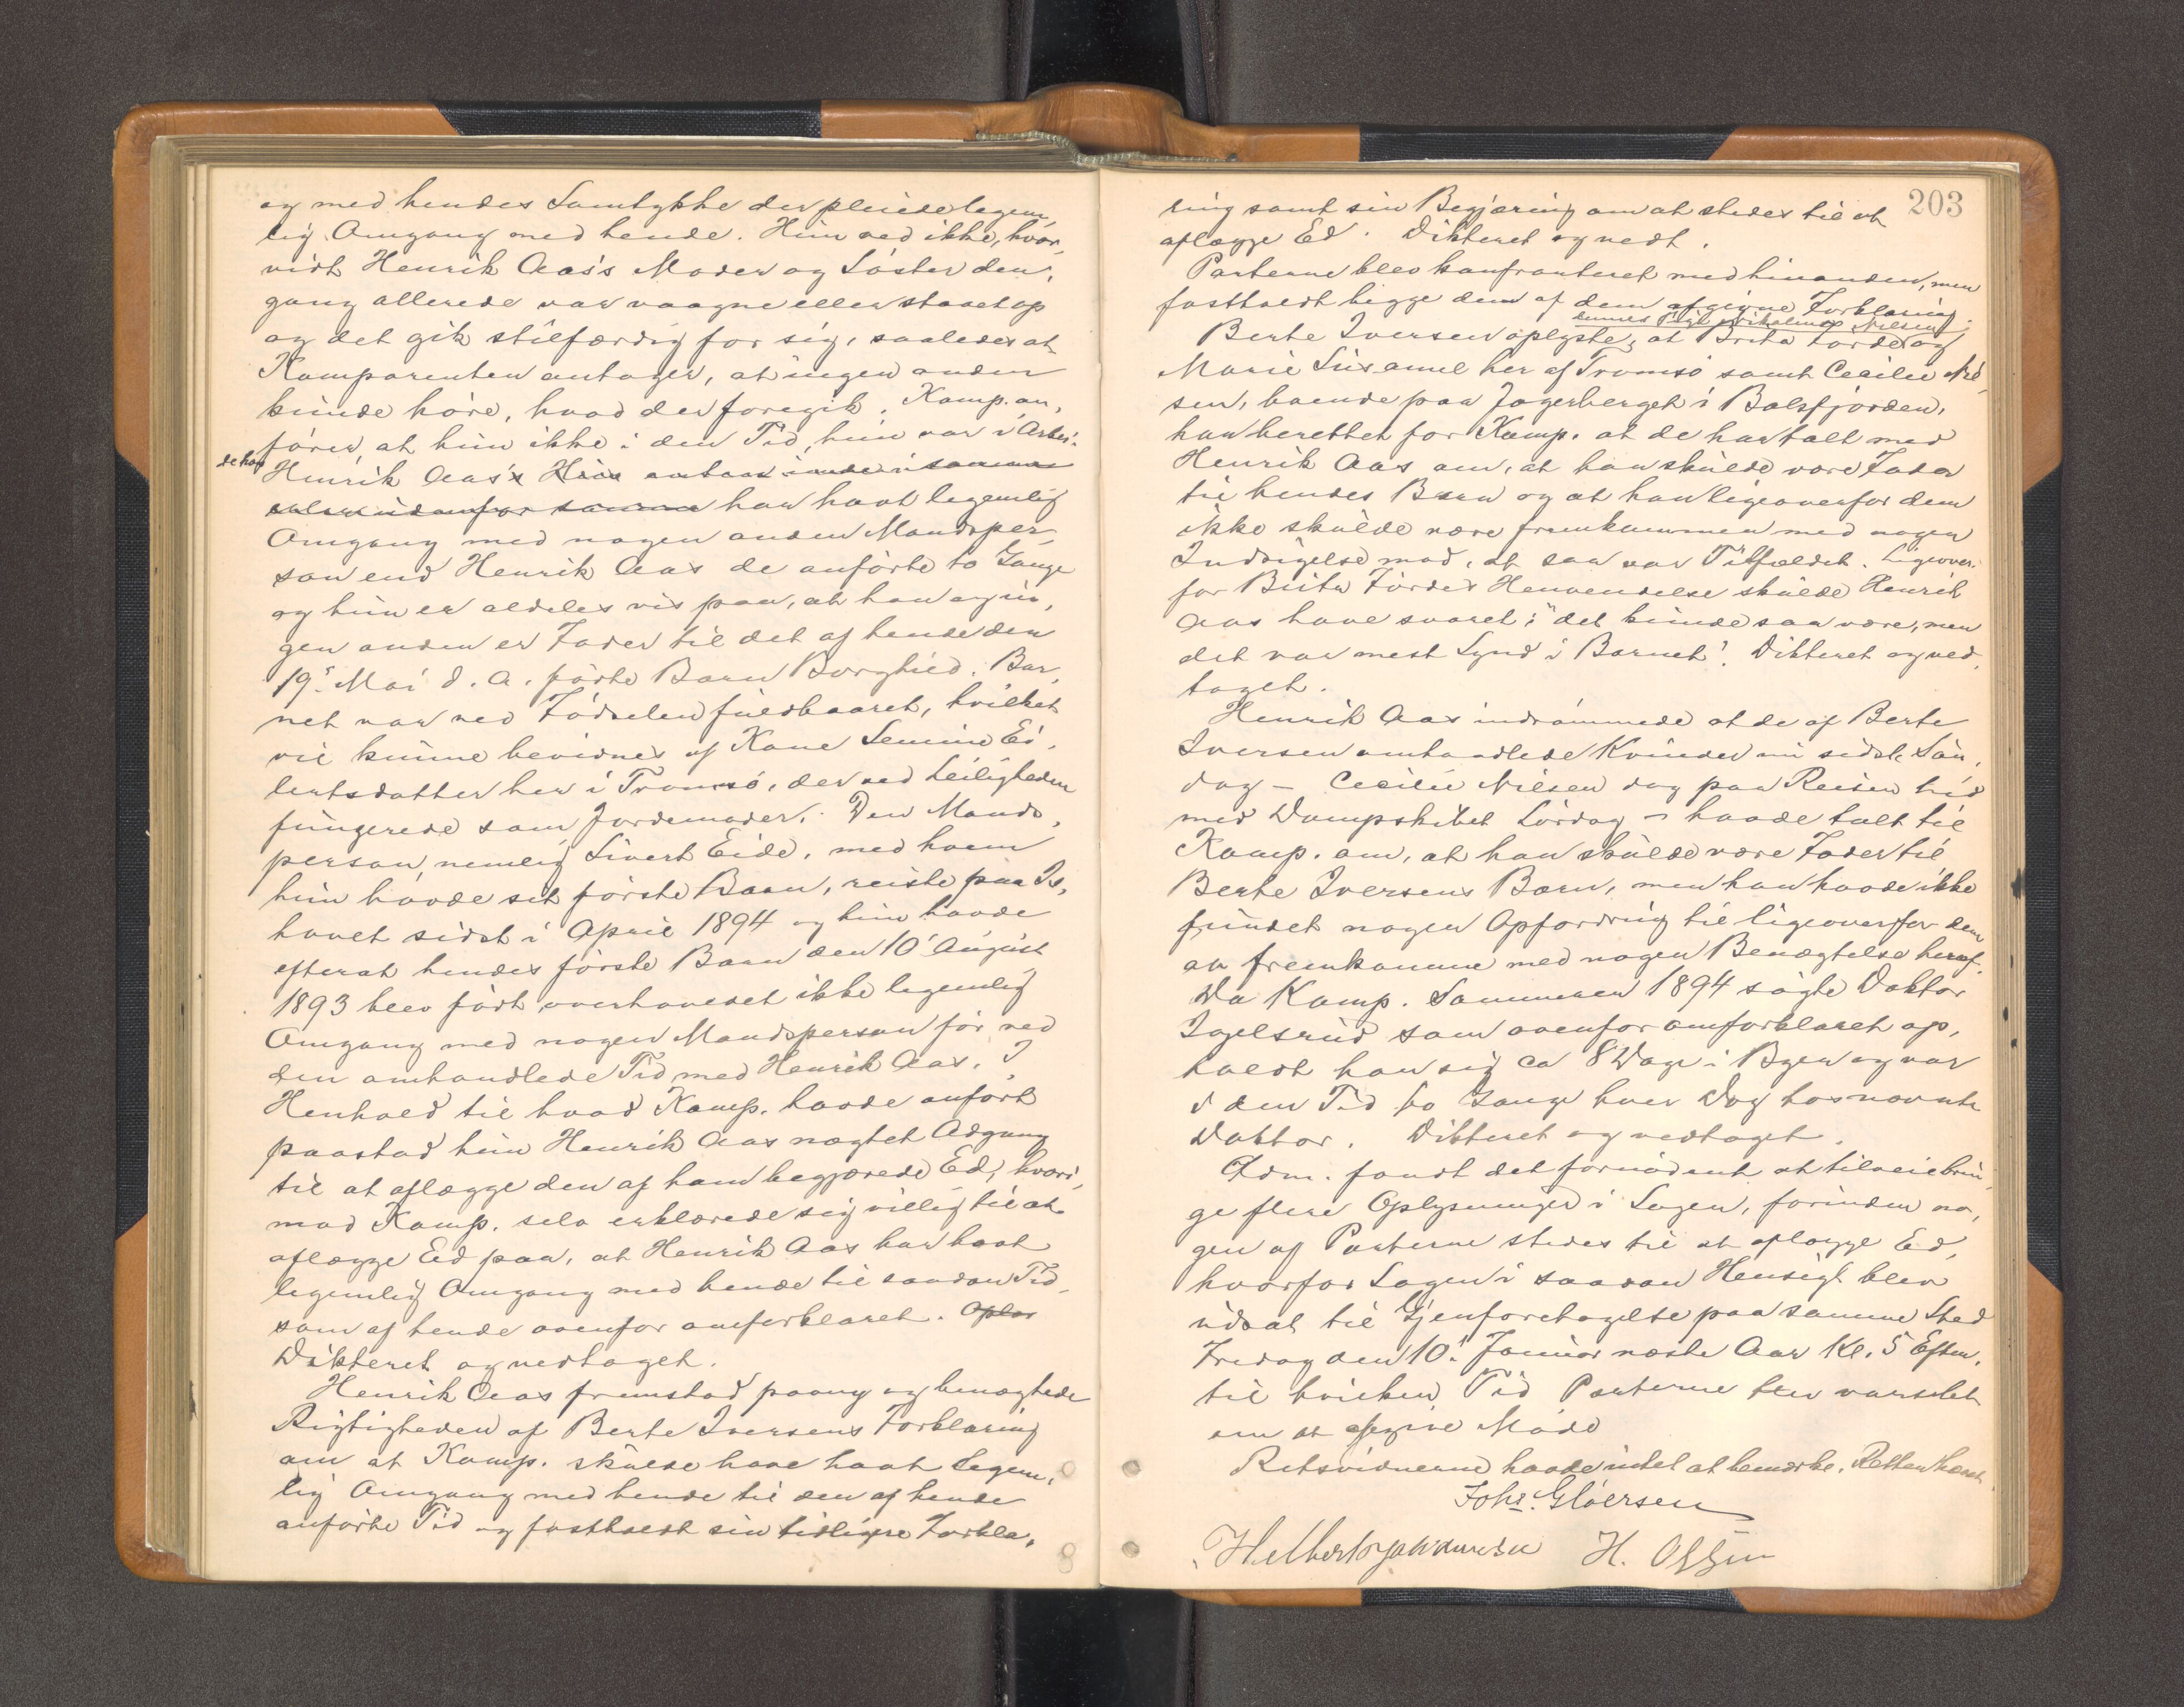 og med hendes Samtykke der pleiede legem-
lig Omgang med hende. Hun ved ikke, hvor-
vidt Henrik Aas's Moder og Söster den-
gang allerede var vaagne eller staaet op
og det gik stilfærdig for sig, saaledes at
Komparenten antager, at ingen anden
kunde höre, hvad der foregik. Komp. an-
förer, at hun ikke i den Tid, hun var i Arbei-
de hos
Henrik Aas's Hus
eller udenfor samme har havt legemlig
Omgang med nogen anden Mandsper-
son end Henrik Aas de anförte to Gange
og hun er aldeles vis paa, at han og in-
gen anden er Fader til det af hende den
19. Mai d. A. födte Barn Borghild. Bar-
net var ved Födselen fuldbaaret, hvilket
vil kunne bevidnes af Kone Lemine Ei-
lertsdatter her i Tromsö, der ved Leiligheden
fungerede som Jordemoder. Den Mands-
person, nemlig Sivert Eide, med hvem
hun havde sit förste Barn, reiste paa Is-
havet sidst i April 1894 og hun havde
efterat hendes förste Barn den 10 August
1893 blev födt overhovedet ikke legemlig
Omgang med nogen Mandsperson för ved
den omhandlede Tid med Henrik Aas. I
Henhold til hvad Komp. havde anfört
paastod hun Henrik Aas nægtet Adgang
til at aflægge den af ham begjærede Ed, hvori-
mod Komp. selv erklærede sig villig til at
aflægge Ed paa, at Henrik Aas har havt
legemlig Omgang med hende til saadan Tid
som af hende ovenfor omforklaret. Oplæs
Dikteret og vedtaget.
Henrik Aas fremstod paany og benægtede
Rigtigheden af Berte Iversens Forklaring
om at Komp. skulde have havt legem-
lig Omgang med hende til den af hende
anförte Tid og fastholdt sin tidligere Forkla-
203
ring samt sin Begjæring om at stedes til at
aflægge Ed. Dikteret og vedt.
Parterne blev konfronteret med hinanden, men
fastholdt begge den af dem afgivne Forklaring.
Nilsen
Berte Iversen oplyste, at Brita Förde og
Marie Susanne her af Tromsö samt Cecilie Nil-
sen, boende paa Jagerberget i Balsfjorden,
har berettet for Komp. at de har talt med
Henrik Aas om, at han skulde være Fader
til hendes Barn og at han ligeoverfor dem
ikke skulde være fremkommen med nogen
Indsigelse mod, at saa var Tilfældet. Ligeover-
for Brita Fördes Henvendelse skulde Henrik
Aas have svaret: "det kunde saa være, men
det var mest Synd i Barnet". Dikteret og ved-
taget.
Henrik Aas indrömmede at de af Berte
Iversen omhandlede Kvinder nu sidste Sön-
dag – Cecilie Nilsen dog paa Reisen hid
med Dampskibet Lördag – havde talt til
Komp. om, at han skulde være Fader til
Berte Iversens Barn, men han havde ikke
fundet nogen Opfordring til ligeoverfor dem
at fremkomme med nogen Benægtelse heraf.
Da Komp. Sommeren 1894 sögte Doktor
Ingelsrud som ovenfor omforklaret op-
holdt han sig ca 8 Dage i Byen og var
i den Tid to Gange hver Dag hos nævnte
Doktor. Dikteret og vedtaget.
Adm. fandt det fornödent at tilveiebrin-
ge flere Oplysninger i Sagen, forinden no-
gen af Parterne stedes til at aflægge Ed,
hvorfor Sagen i saadan Hensigt blev
udsat til Gjenforetagelse paa samme Sted
Fredag den 10. Januar næste Aar Kl. 5 Efterm.
til hvilken Tid Parterne blev varslet
om at afgive Möde
Retsvidnerne havde intet at bemærke. Retten hævet.
Johs. Gløersen
H. Olsen